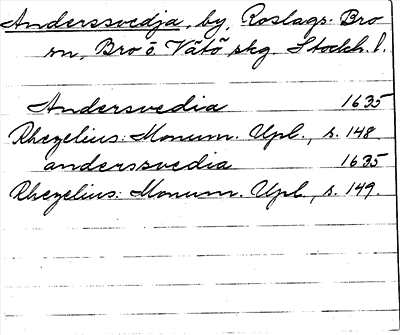 Anderssvedja, by, Roslags-Bro
sn, Bro o Vätö skg. Stockh. l.
Andersvedia 1635
Rhezelius: Monum. Upl., s. 148.
anderssvedia 1635
Rhezelius: Monum. Upl., s. 149.